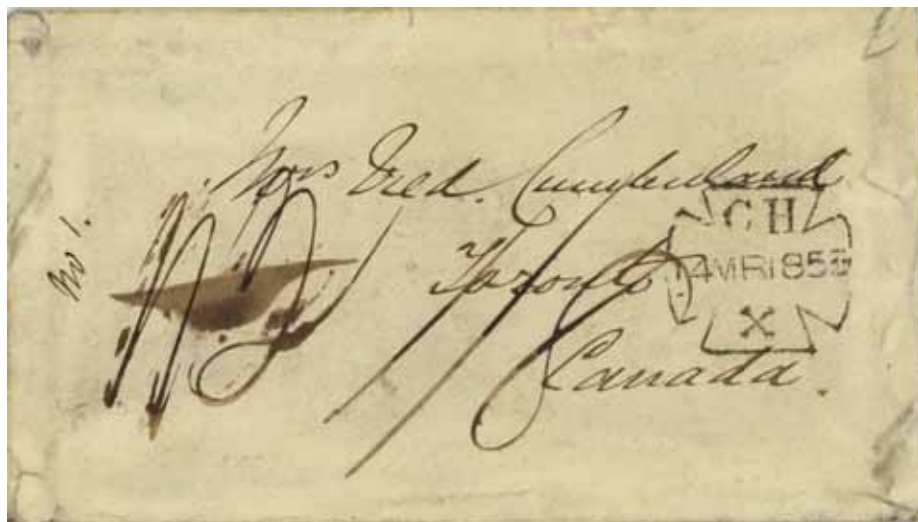 Mrs Fred. Cumberland
Toronto
Canada.
No 1.
C H
14 MR 185
X